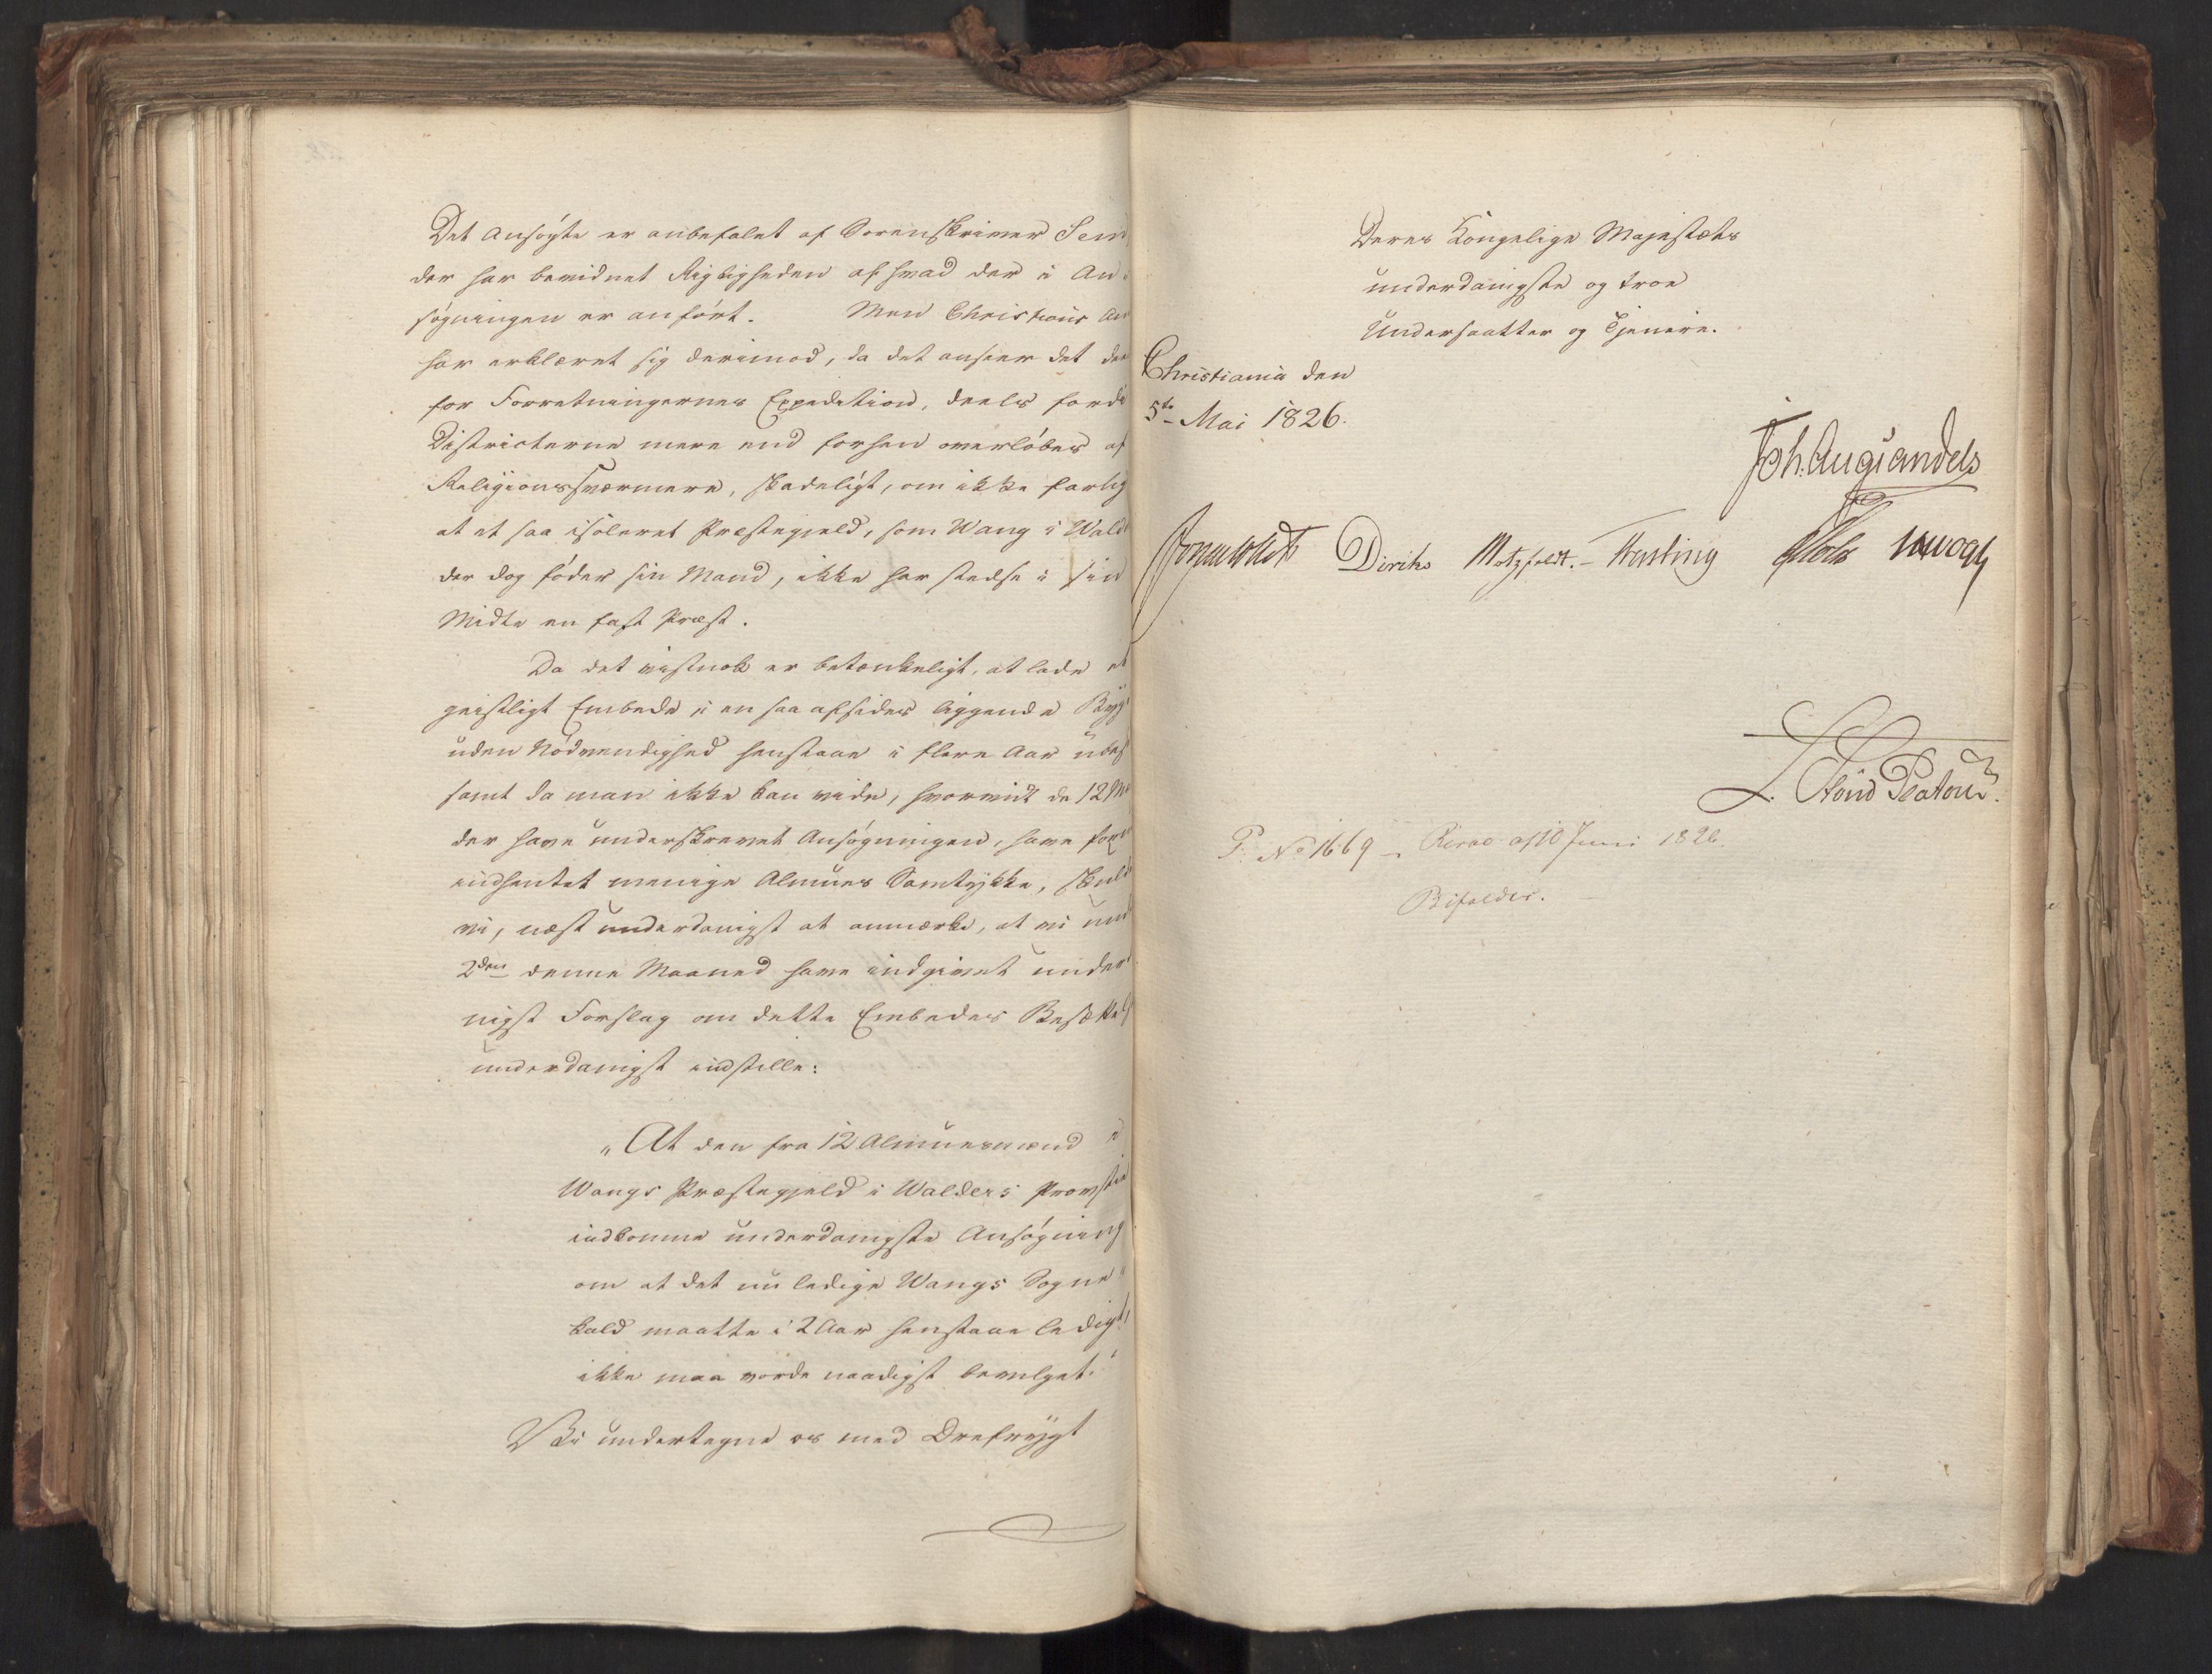 Det Ansøgte er anbefalet af Sorenskriver Sem
der har bevidnet Rigtigheden af hvad der i An-
søgningen er anført. Men Christians Am
har erklæret sig derimod, da det anseer det dee
for Forretningernes Expedition, deels fordi
Districterne mere end forhen overløbes af
Religionssværmere, skadeligt, om ikke farlig
at et saa isoleret Præstegjeld, som Wang i Wald
der dog føder sin Mand, ikke har stedse i sin
Midte en fast Præst.
Da det vistnok er betænkeligt, at lade et
geistligt Embede i en saa afsides liggende Byg
uden Nødvendighed henstaae i flere Aar ubes
samt da man ikke kan vide, hvorvidt de 12 M
der have underskrevet Ansøgningen, have for
indhentet menige Almues Samtykke, skul
vi, næst underdanigst at anmærke, at vi und
2den denne Maaned have indgivet under
nigst Forslag om dette Embedes Besættels
underdanigst indstille:
„At den fra 12 Almuesmænd i
Wangs Præstegjeld i Walders Provstie
indkomne underdanigste Ansøgning
om at det nu ledige Wangs Sogne
kald maatte i 2 Aar henstaae ledigt,
ikke maa vorde naadigst bevilget."
Vi undertegne os med Ærefrygt
Deres Kongelige Majestæts
underdanigste og troe
Undersaatter og Tjenere.
Christiania den
5te Mai 1826.
Joh. Aug Sandels
Sommerhielm Diriks Motzfeldt. Fasting Holst JH Vogt
L. Stoud Platou
P. No 1669 – Resol. af 10 Juni 1826
Bifaldes.